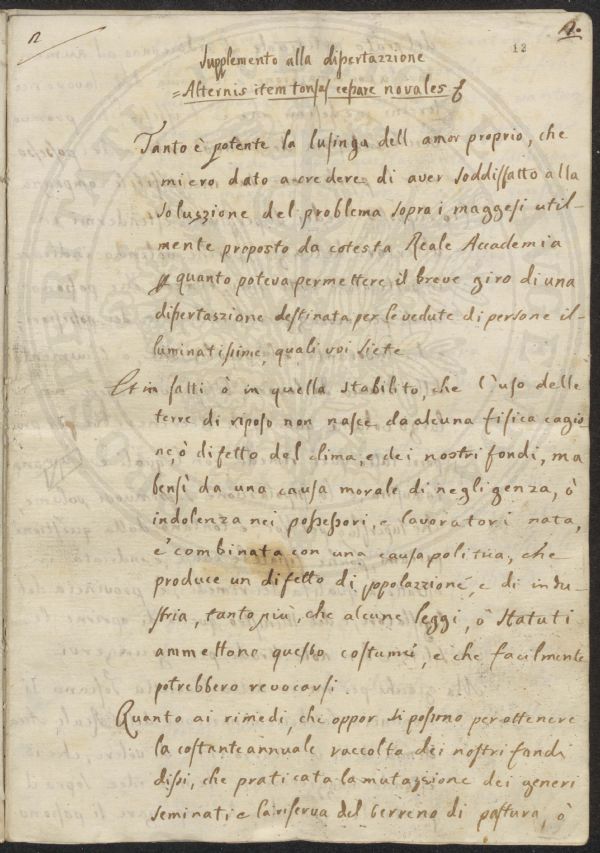 12
1.
12
Supplemento alla dissertazzione
=Alternis item tonsas cessare novales
Tanto è potente la lusinga dell amor proprio, che
mi ero dato a credere di aver soddisfatto alla
soluszione del problema sopra i maggesi util-
mente proposto da cotesta Reale Accademia
quanto poteva permettere il breve giro di una
dissertaszione destinata per le vedute di persone il-
luminatissime, quali voi siete
Et in fatti ò in quella stabilito, che l'uso delle
terre di riposo non nasce da alcuna fisica cagio
ne, ò difetto del clima, e dei nostri fondi, ma
bensì da una causa morale di negligenza, ò
indolenza nei possessori, e lavoratori nata,
e combinata con una causa politica, che
produce un difetto di popolazzione, e di indu-
stria, tanto più, che alcune leggi, ò Statuti
ammettono questo costume, e che facilmente
potrebbero revocarsi.
Quanto ai rimedi, che oppor si possono per ottenere
la costante annuale raccolta dei nostri fondi
dissi, che praticata la mutazzione dei generi
seminati e la riserva del terreno di pastura, ò